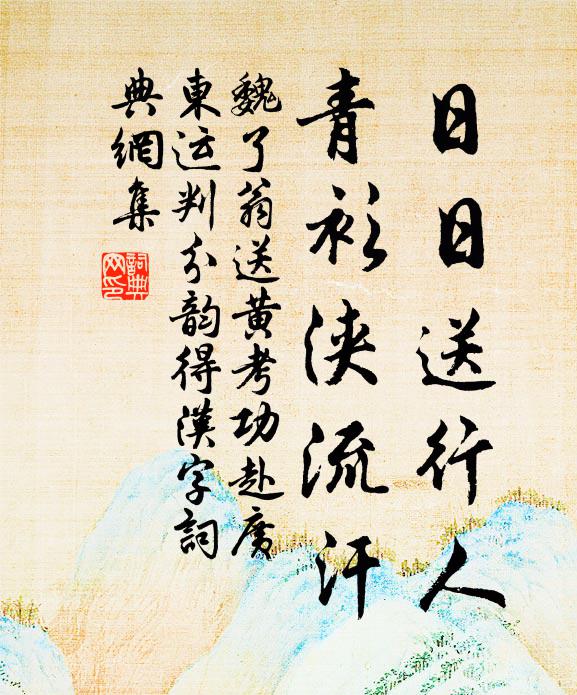 日日送行人
青衫浹流汗
魏了翁送黄考功赴廣
東运判分韵得漢字詞
典網集
詞典网印